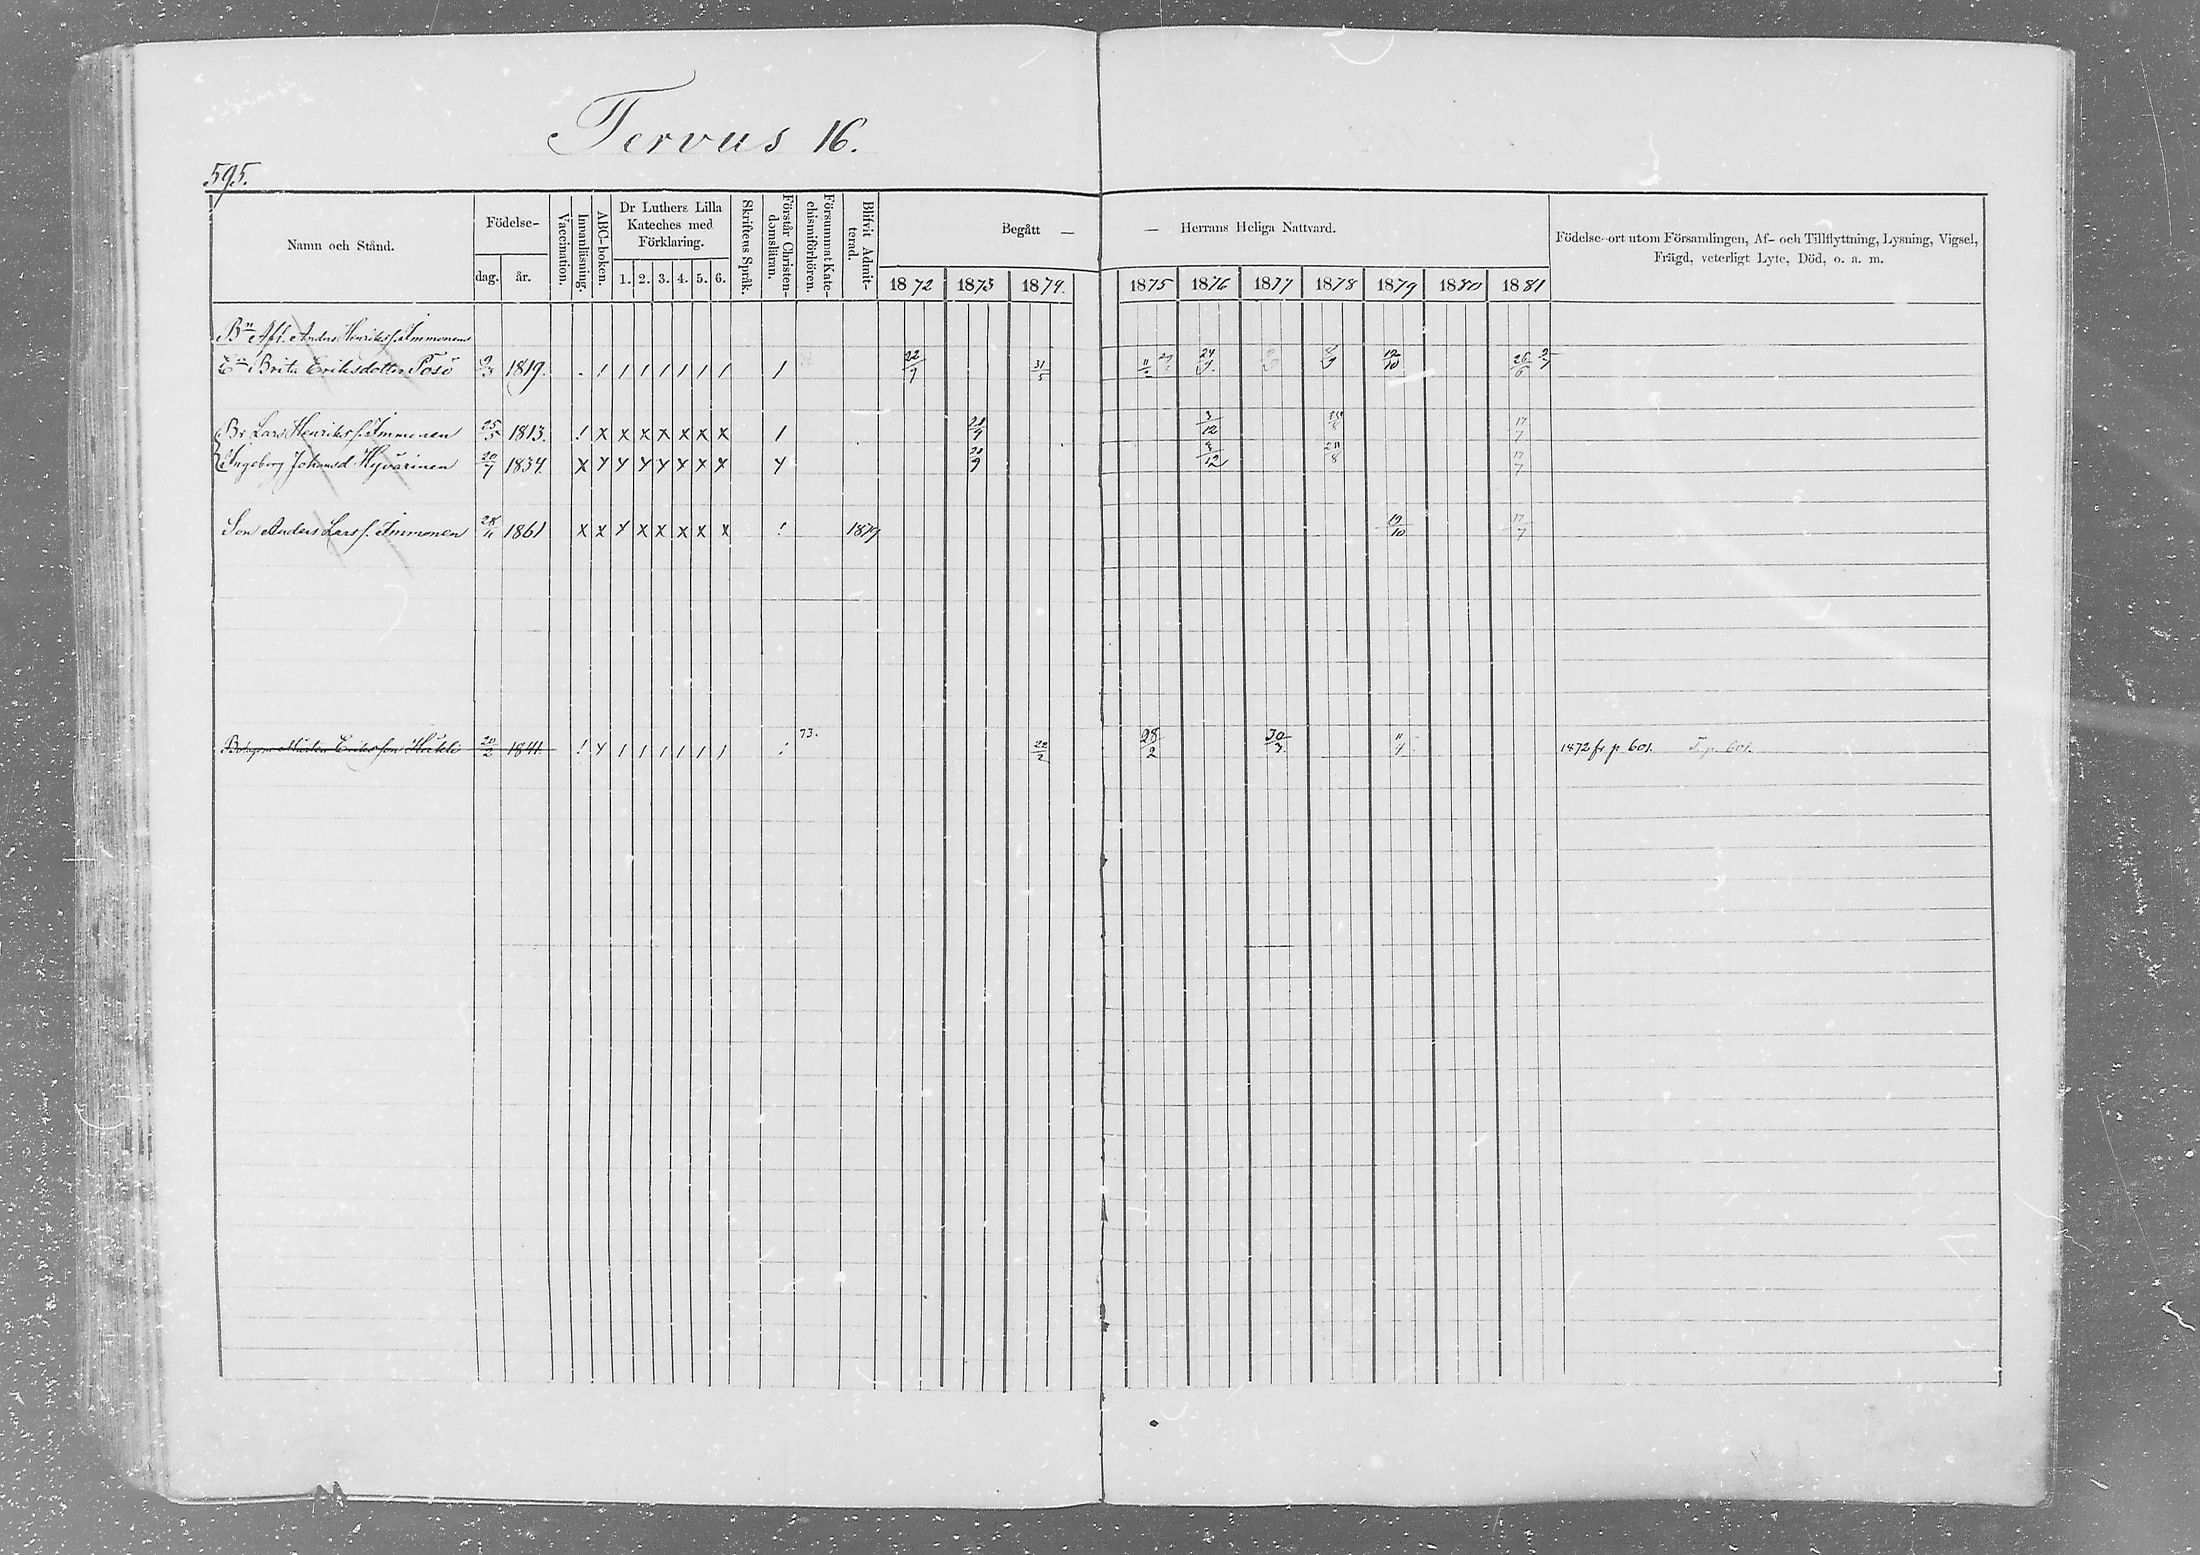 Tervus 16.
595.
Namn och Stånd.
Födelse-
dag. år.
Vaccination.
Innanläsning.
ABC-boken.
Dr Luthers Lilla
Kateches med
Förklaring.
1. 2. 3. 4. 5. 6.
Skriftens Språk.
Förstår Christen-
domsläran.
Försummat Kate-
chismiförhören.
Blifvit Admit-
terad.
Begått — — Herrans Heliga Nattvard.
1872 1873 1874. 1875 1876 1877 1878 1879 1880 1881
Födelse-ort utom Församlingen, Af- och Tillflyttning, Lysning, Vigsel,
Frägd, veterligt Lyte, Död, o. a. m.
Bn Afl. Anders Henrikss. Immonens
Ea Brita Eriksdotter Pösö 1819. 22/9 31/5 24/9 12/10 26/6
Br Lars Henrikss. Immonen 25/5 1813. 28/9 3/12 28/8 17/7
Ingeborg Johansd. Hyvärinen 20/7 1834 28/9 3/12 28/8 17/7
Son Anders Larss. Immonen 28/11 1861 1879 19/10 17/7
Mårten Eriksson Häkli 20/2 1841. 73. 22/2 28/2 30/3 11/4 1872 fr p. 601. T. p. 601.